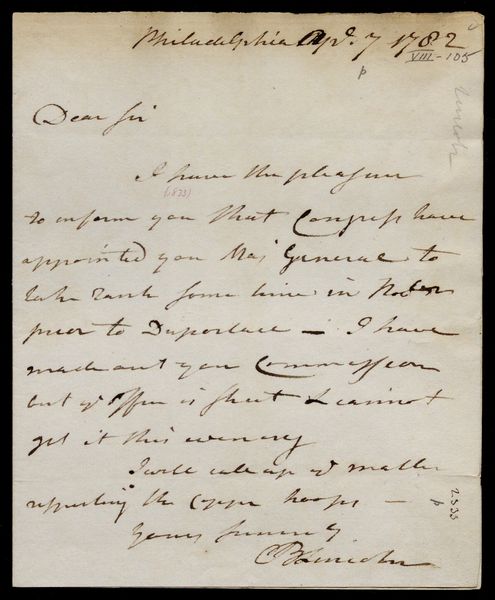 Philadelphia Apl. 7 1782
VIII-105
p
Lincoln
Dear Sir
I have the pleasure
(1873)
to inform you that Congress have
appointed you Maj General to
take rank some time in Nober
prior to Duportail — I have
made out your Commission
but ye Office is shut & cannot
get it this evening
I will call up ye matter
respecting the copper hoops —
Yours sincerely
B Lincoln
2333
p